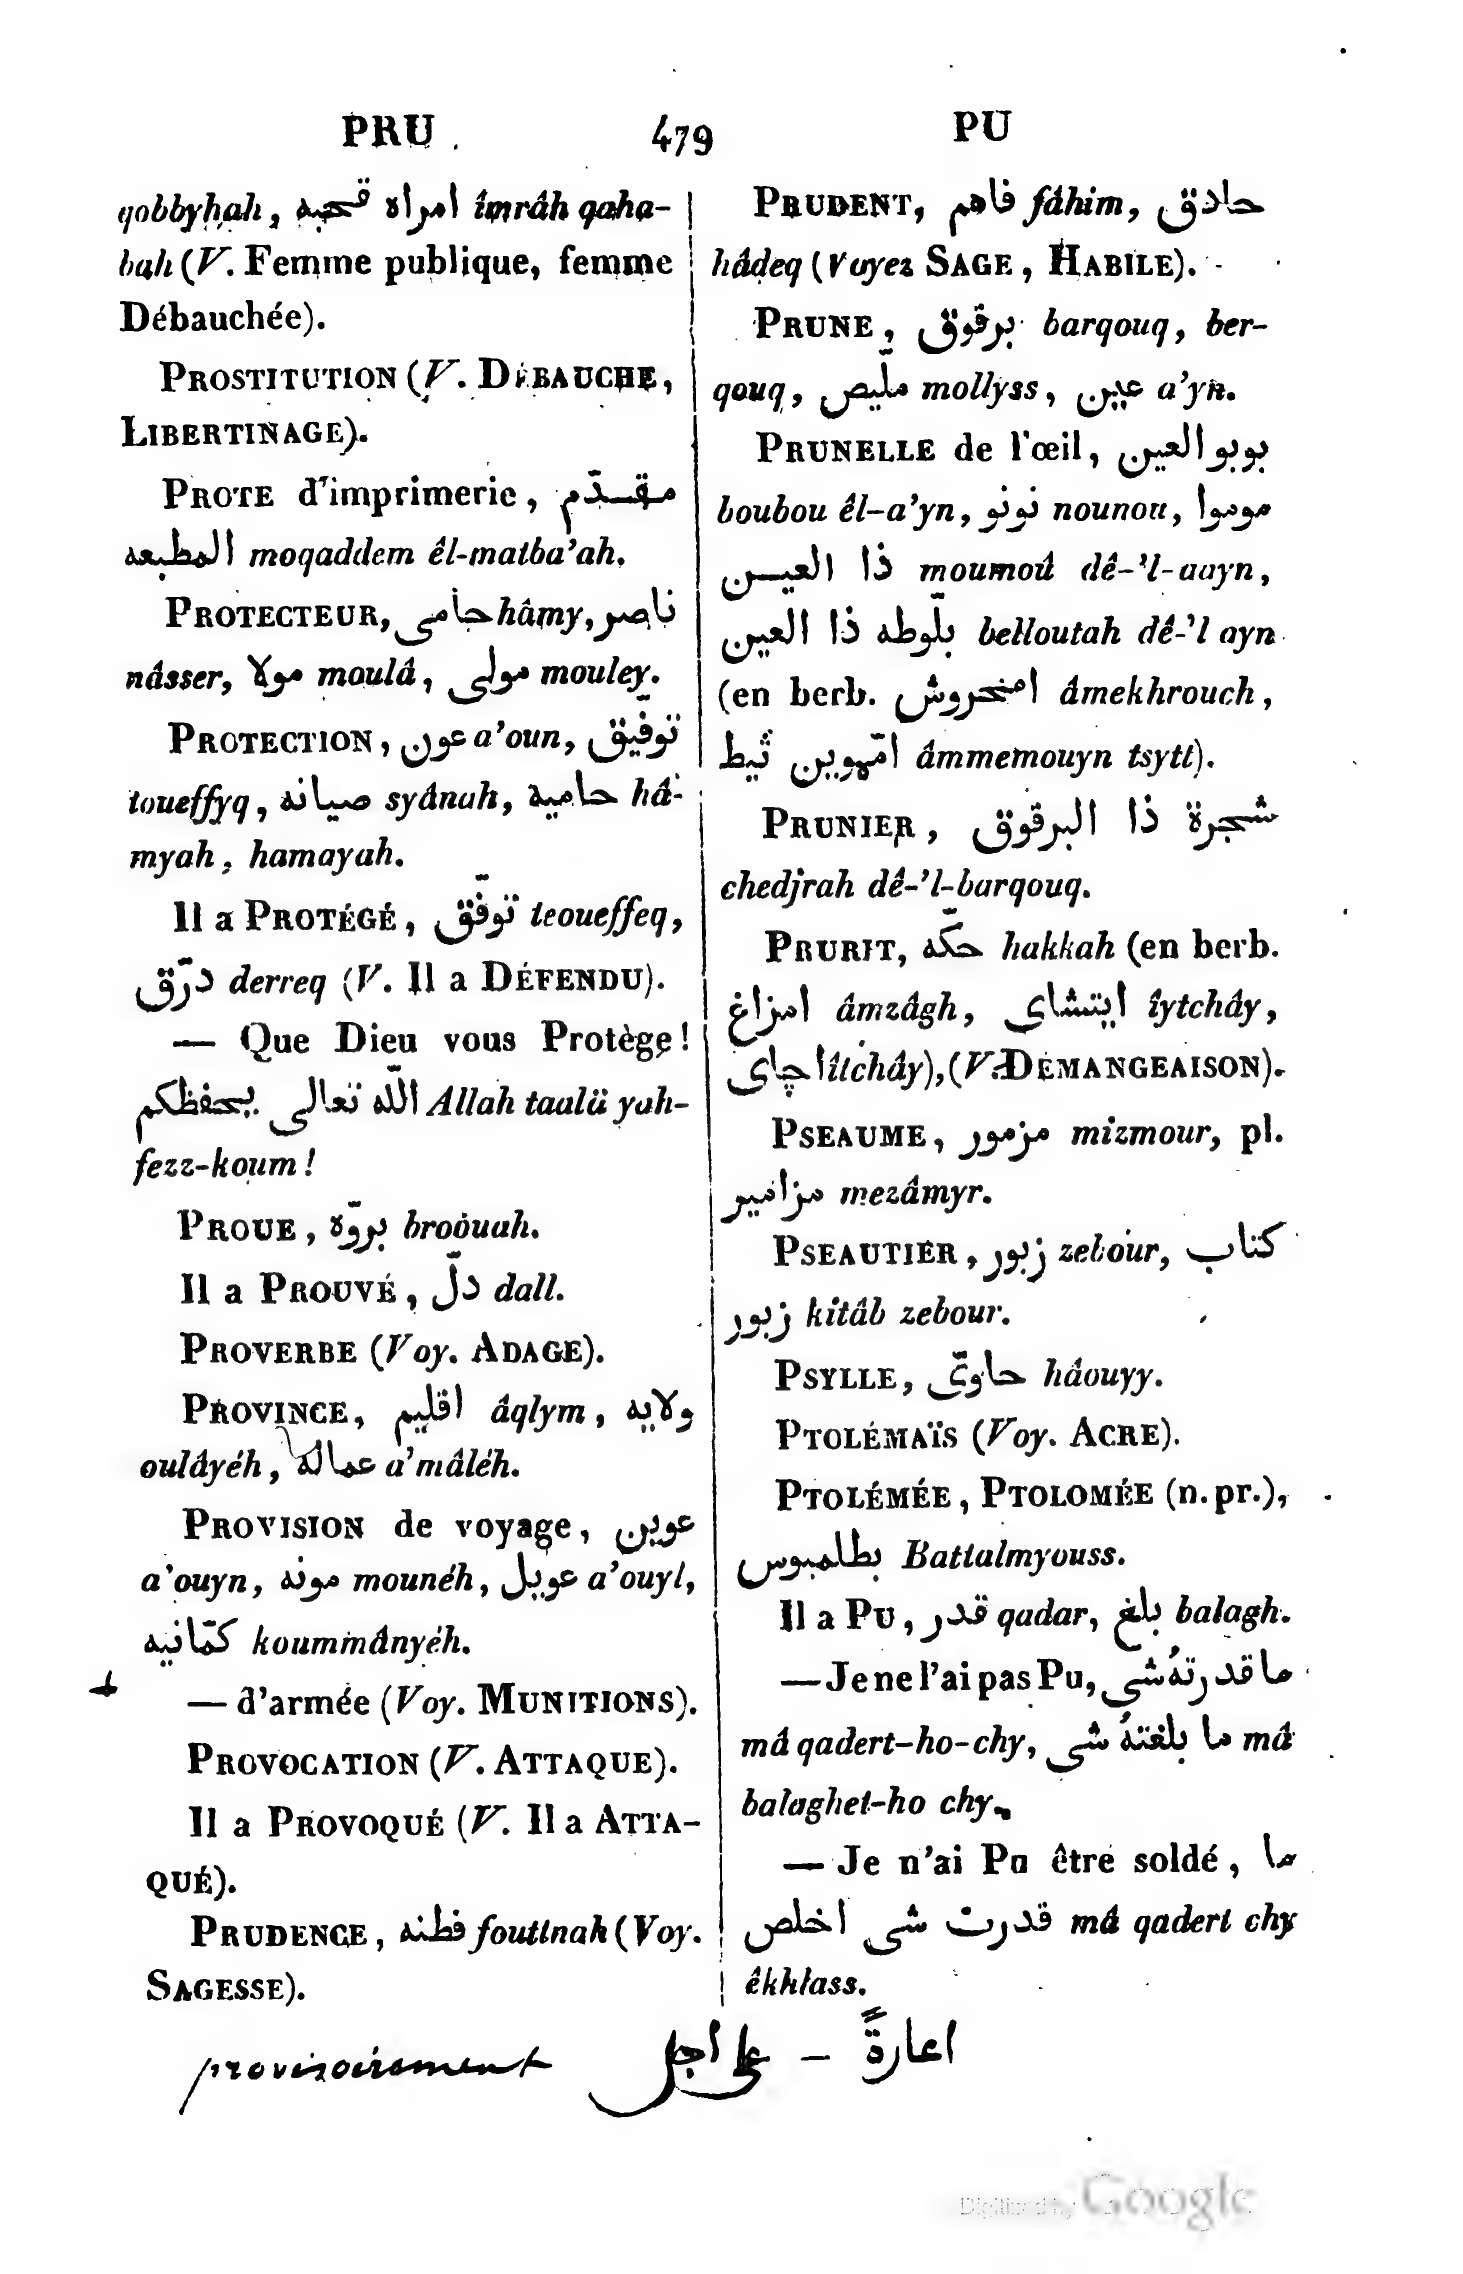 PRU
479
PU
qobbyḥah, امراه قحبه îmrâh qaha-
bah (V. Femme publique, femme
Débauchée).
PROSTITUTION (V. DÉBAUCHE,
LIBERTINAGE).
PROTE d'imprimerie, مقدّم
المطبعه moqaddem êl-matba'ah.
PROTECTEUR, حامى hâmy, ناصر
nâsser, مولا moulâ, مولى mouley.
PROTECTION, عون a'oun, توفّيق
toueffyq, صيانه syânah, حاميه hâ-
myah, hamayah.
Il a PROTÉGÉ, توفّق teoueffeq,
درّق derreq (V. Il a DÉFENDU).
— Que Dieu vous Protège!
اللّه تعالى يحفظكم Allah taalä yah-
fezz-koum!
PROUE, بروّه broouah.
Il a PROUVÉ, دلّ dall.
PROVERBE (Voy. ADAGE).
PROVINCE, اقليم âqlym, ولايه
oulâyéh, عمالة a'mâléh.
PROVISION de voyage, عوين
a'ouyn, مونه mounéh, عويل a'ouyl,
كمّانيه koummânyéh.
— d'armée (Voy. MUNITIONS).
PROVOCATION (V. ATTAQUE).
Il a PROVOQUÉ (V. Il a ATTA-
QUÉ).
PRUDENCE, فطنه fouttnah (Voy.
SAGESSE).
PRUDENT, فاهم fâhim, حادق
hâdeq (Voyez SAGE, HABILE).
PRUNE, برقوق barqouq, ber-
qouq, ملّيص mollyss, عين a'yn.
PRUNELLE de l'œil, بوبو العين
boubou êl-a'yn, نونو nounou, موموا
ذا العين moumoû dê-'l-aayn,
بلّوطه ذا العين belloutah dê-'l ayn
(en berb. امخروش âmekhrouch,
امّهوين ثيط âmmemouyn tsytt).
PRUNIER, شجرة ذا البرقوق
chedjrah dê-'l-barqouq.
PRURIT, حكّه hakkah (en berb.
امزاغ âmzâgh, ايتشاى îytchây,
اچاى îtchây), (V. DÉMANGEAISON).
PSEAUME, مزمور mizmour, pl.
مزامير mezâmyr.
PSEAUTIER, زبور zebour, كتاب
زبور kitâb zebour.
PSYLLE, حاوىّ hâouyy.
PTOLÉMAÏS (Voy. ACRE).
PTOLÉMÉE, PTOLOMÉE (n. pr.),
بطلميوس Battalmyouss.
Il a PU, قدر qadar, بلغ balagh.
— Je ne l'ai pas Pu, ما قدرتهُ شى
mâ qadert-ho-chy, ما بلغتهُ شى mâ
balaghet-ho chy.
— Je n'ai Pu être soldé, ما
قدرت شى اخلص mâ qadert chy
êkhlass.
provisoirement على اجل — اعارةً
Digitized by Google